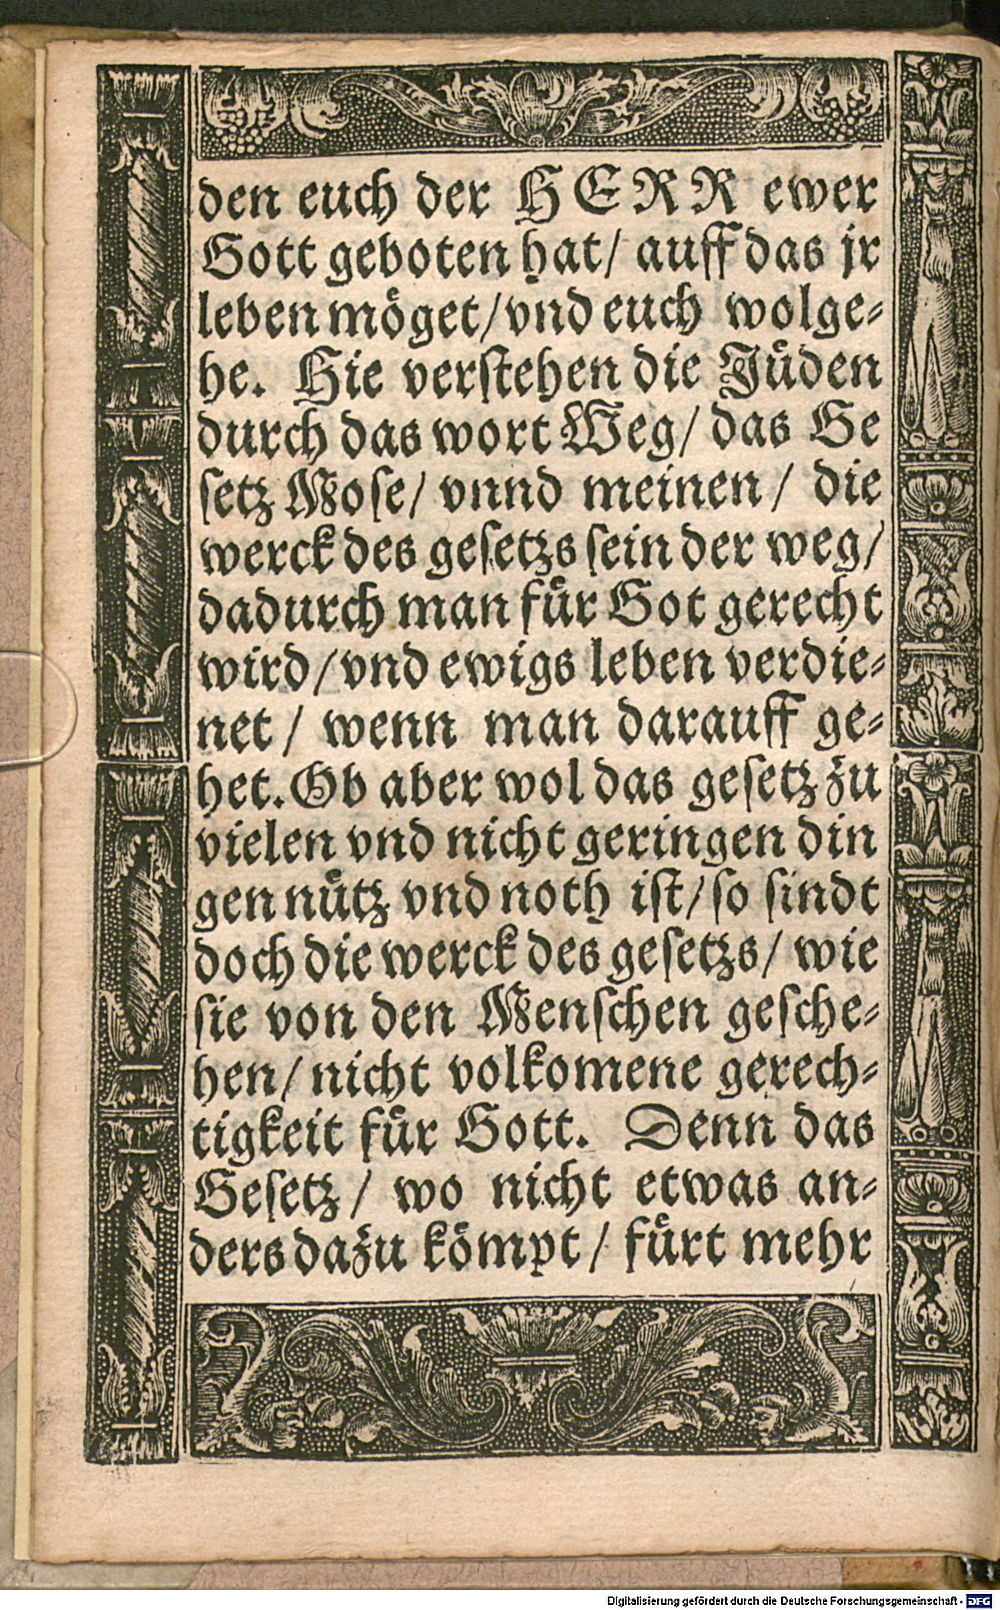 den euch der HERR ewer
Gott geboten hat/ auff das jr
leben möget/ vnd euch wolge-
he. Hie verstehen die Jüden
durch das wort Weg/ das Ge
setz Mose/ vnnd meinen/ die
werck des gesetzs sein der weg/
dadurch man für Got gerecht
wird/ vnd ewigs leben verdie-
net/ wenn man darauff ge-
het. Ob aber wol das gesetz zu
vielen vnd nicht geringen din
gen nütz vnd noth ist/ so sindt
doch die werck des gesetzs/ wie
sie von den Menschen gesche-
hen/ nicht volkomene gerech-
tigkeit für Gott. Denn das
Gesetz/ wo nicht etwas an-
ders dazu kömpt/ fürt mehr
Digitalisierung gefördert durch die Deutsche Forschungsgemeinschaft - DFG